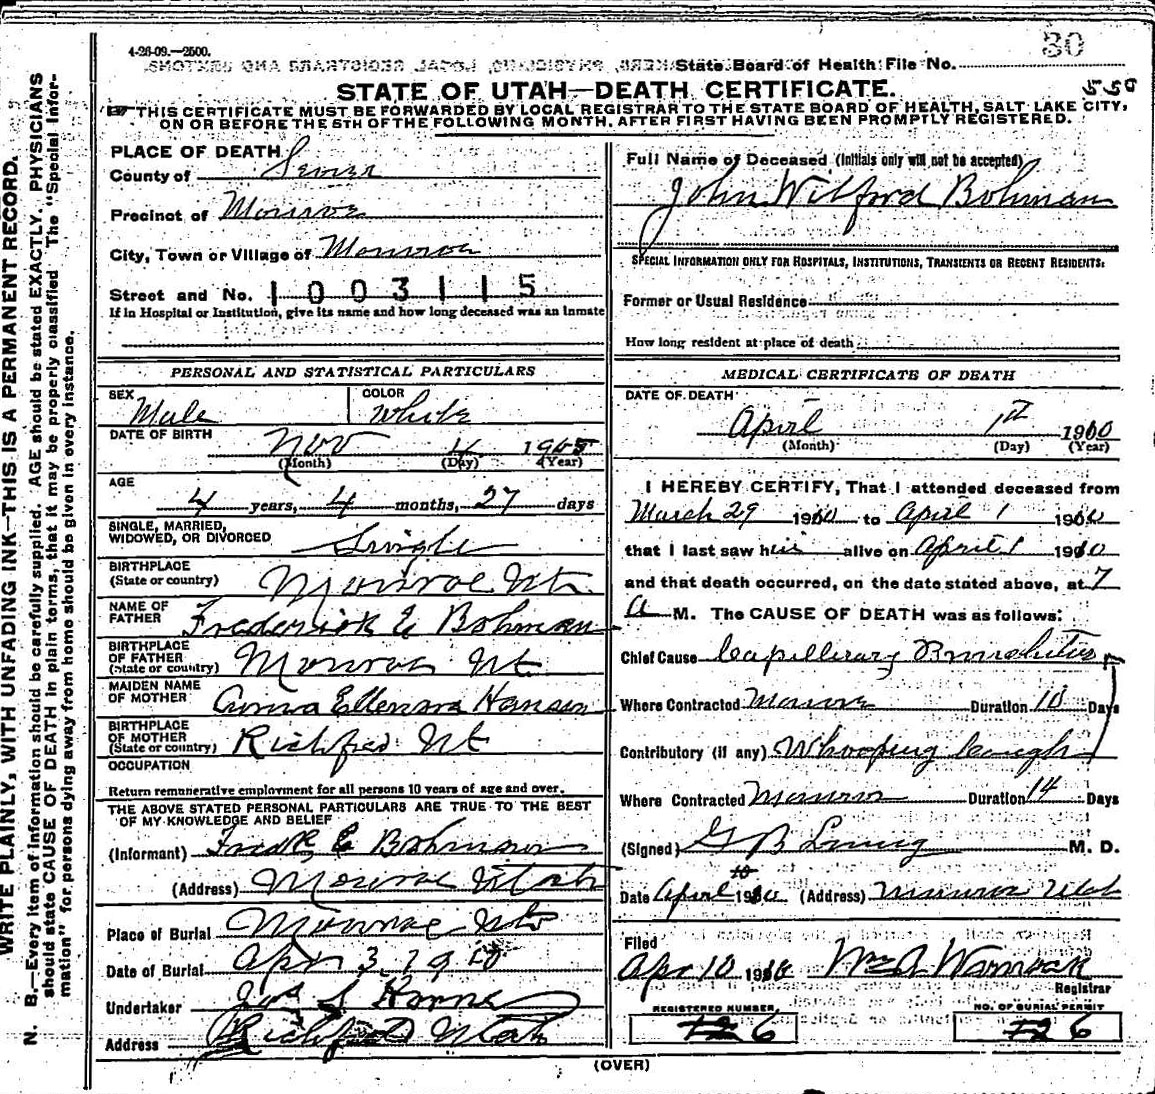 30
4-26-09.—2500.
State Board of Health File No.
STATE OF UTAH—DEATH CERTIFICATE.
550
THIS CERTIFICATE MUST BE FORWARDED BY LOCAL REGISTRAR TO THE STATE BOARD OF HEALTH, SALT LAKE CITY,
ON OR BEFORE THE 5TH OF THE FOLLOWING MONTH, AFTER FIRST HAVING BEEN PROMPTLY REGISTERED.
WRITE PLAINLY, WITH UNFADING INK—THIS IS A PERMANENT RECORD.
N. B.—Every item of information should be carefully supplied. AGE should be stated EXACTLY. PHYSICIANS
should state CAUSE OF DEATH in plain terms, that it may be properly classified. The "Special Infor-
mation" for persons dying away from home should be given in every instance.
PLACE OF DEATH
County of Sevier
Precinct of Monroe
City, Town or Village of Monroe
Street and No. 1003115
If in Hospital or Institution, give its name and how long deceased was an inmate
PERSONAL AND STATISTICAL PARTICULARS
SEX Male COLOR White
DATE OF BIRTH Nov 4 1905
(Month) (Day) (Year)
AGE
4 years, 4 months, 27 days
SINGLE, MARRIED,
WIDOWED, OR DIVORCED Single
BIRTHPLACE
(State or country) Monroe Ut.
NAME OF
FATHER Frederick E Bohman
BIRTHPLACE
OF FATHER
(State or country) Monroe Ut
MAIDEN NAME
OF MOTHER Anna Ellenora Hansen
BIRTHPLACE
OF MOTHER
(State or country) Richfield Ut
OCCUPATION
Return remunerative employment for all persons 10 years of age and over.
THE ABOVE STATED PERSONAL PARTICULARS ARE TRUE TO THE BEST
OF MY KNOWLEDGE AND BELIEF
(Informant) Fredk E Bohman
(Address) Monroe Utah
Place of Burial Monroe Ut
Date of Burial Apr 3, 1910
Undertaker Jos S Horne
Address Richfield Utah
Full Name of Deceased (Initials only will not be accepted)
John Wilford Bohman
SPECIAL INFORMATION ONLY FOR HOSPITALS, INSTITUTIONS, TRANSIENTS OR RECENT RESIDENTS:
Former or Usual Residence
How long resident at place of death
MEDICAL CERTIFICATE OF DEATH
DATE OF DEATH
April 1st 1910
(Month) (Day) (Year)
I HEREBY CERTIFY, That I attended deceased from
March 29 1910 to April 1 1910
that I last saw him alive on April 1 1910
and that death occurred, on the date stated above, at 7
a M. The CAUSE OF DEATH was as follows:
Chief Cause Capillary Bronchitis
Where Contracted Monroe Duration 10 Days
Contributory (if any) Whooping Cough
Where Contracted Monroe Duration 14 Days
(Signed) G B M. D.
Date April 10 1910 (Address) Monroe Utah
Filed
Apr 10 1910 Wm A Warnock
Registrar
REGISTERED NUMBER 12 6
NO. OF BURIAL PERMIT 12 6
(OVER)